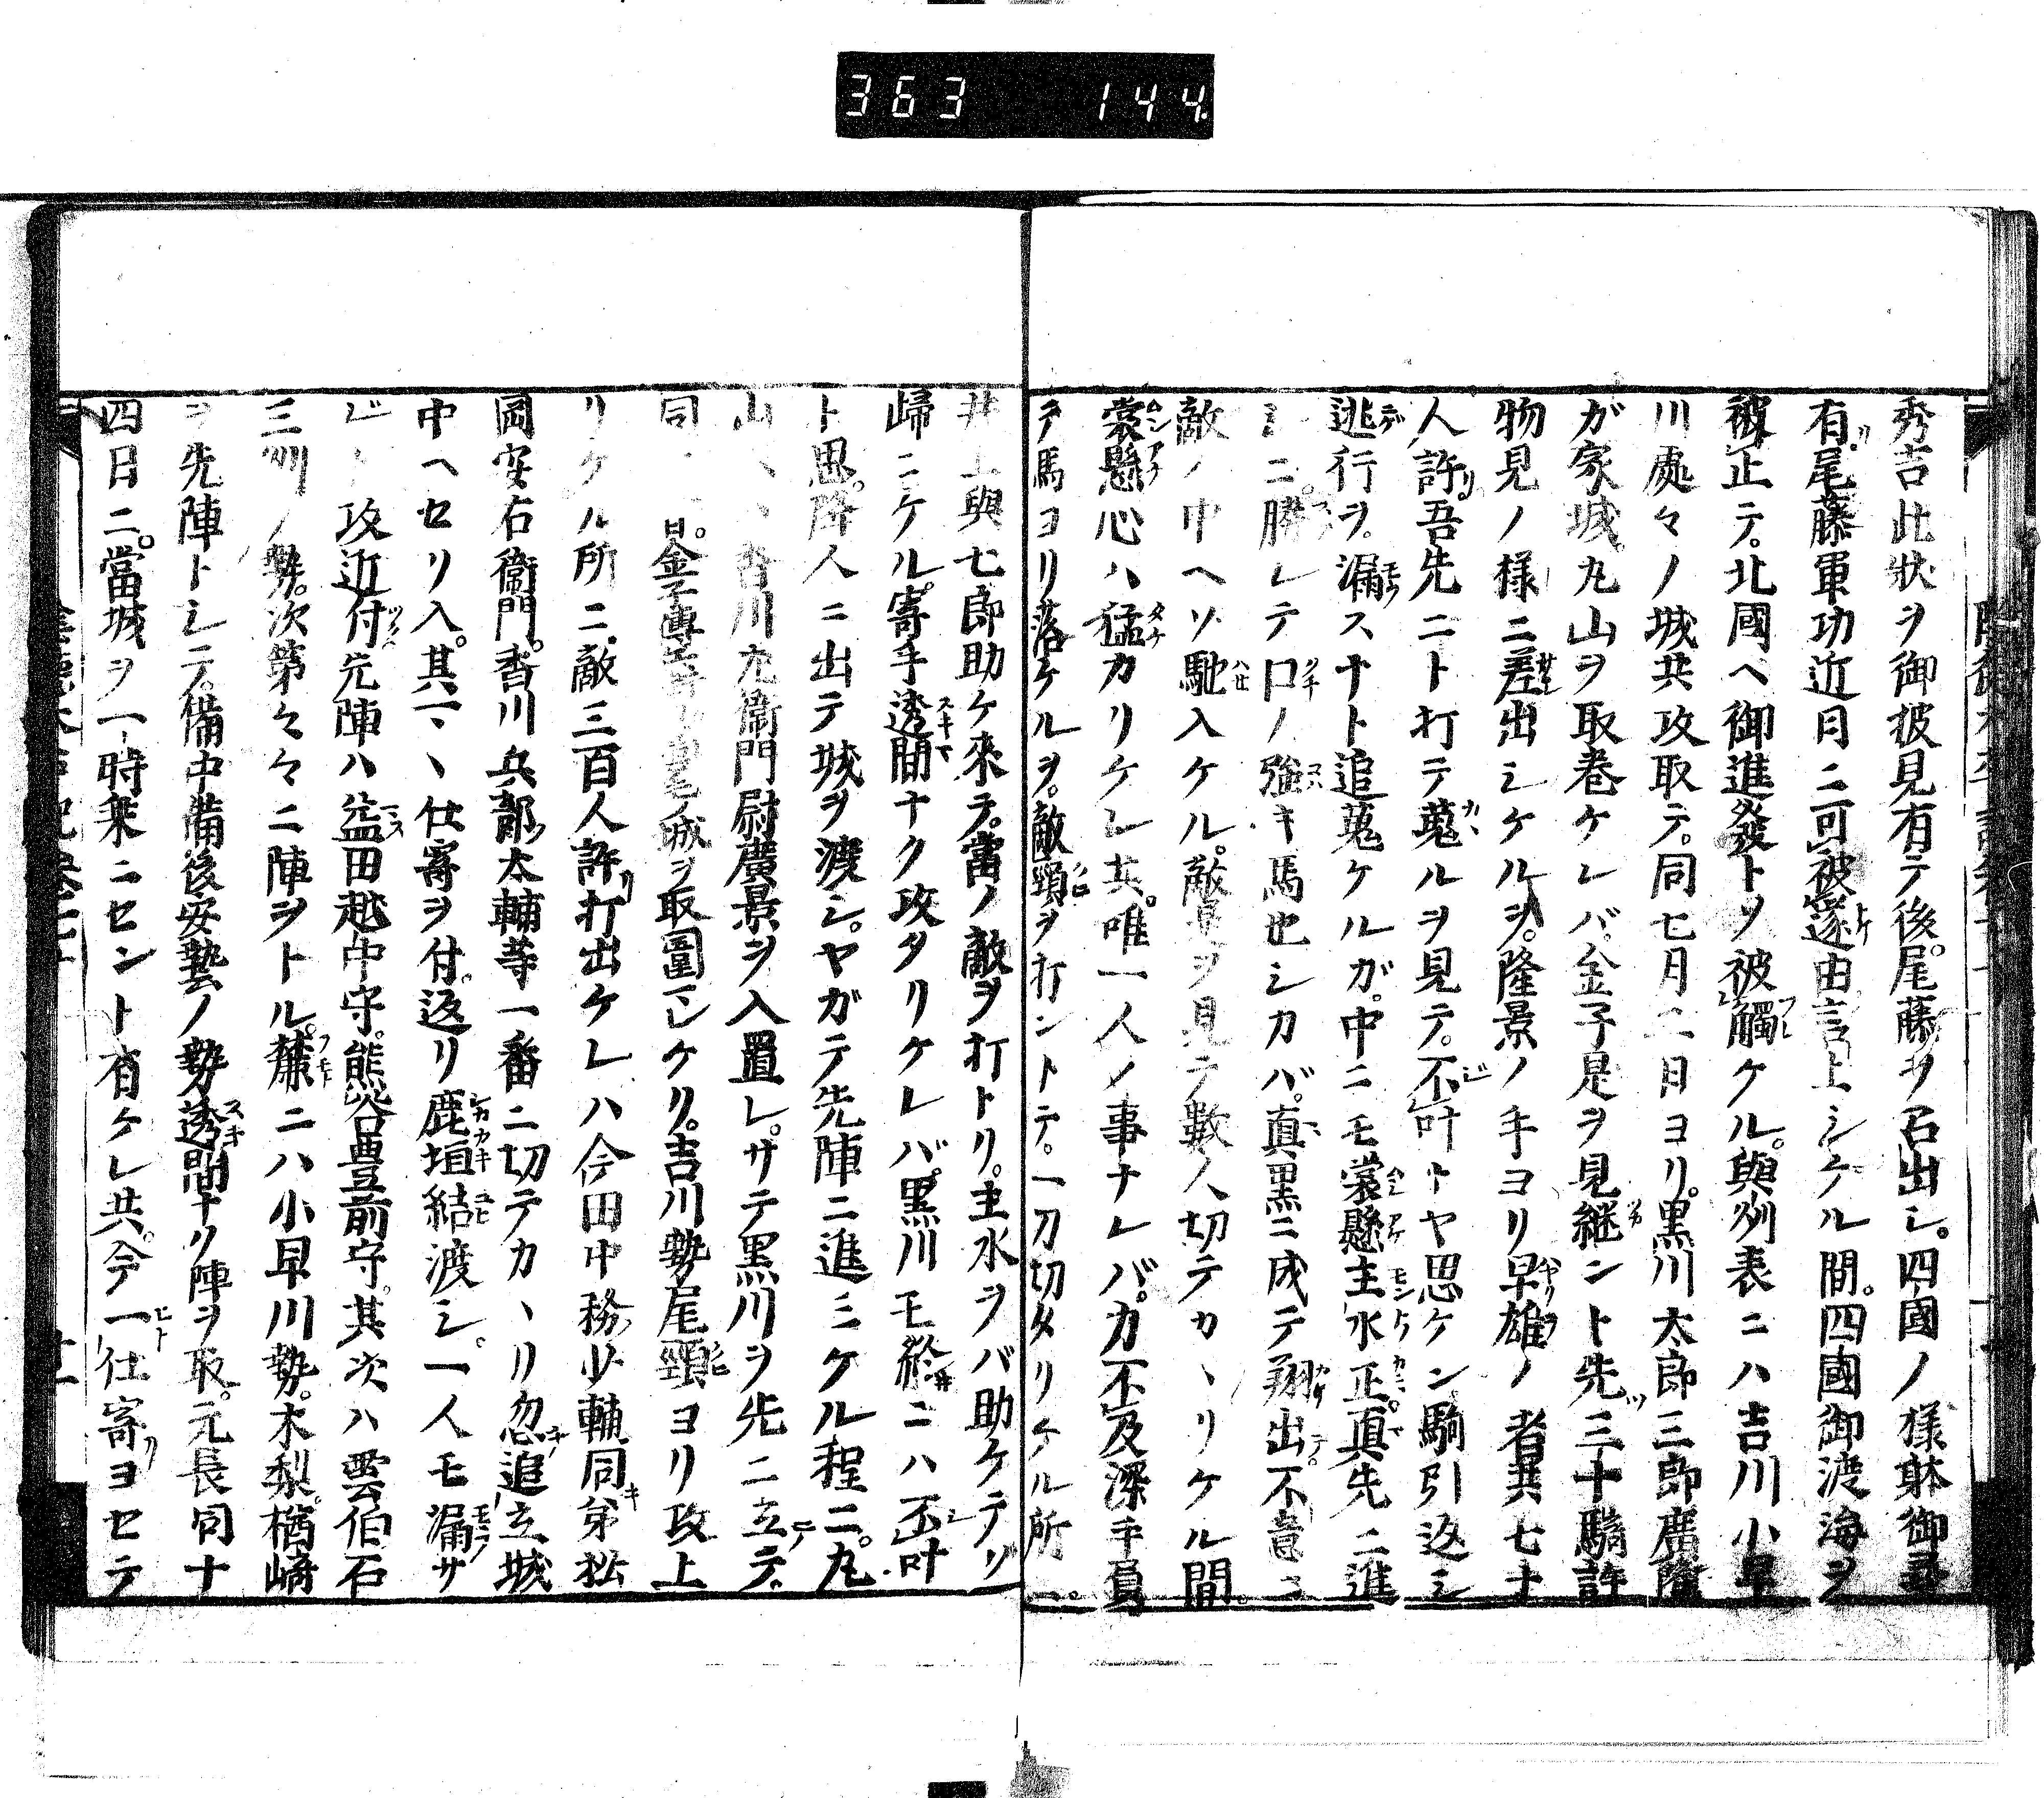 363 144
秀吉此狀ヲ御披見有テ後。尾藤ヲ召出シ。四國ノ樣躰御尋
有。尾藤軍功近日ニ可被遂由言上シケル間。四國御渡海ヲ
被止テ。北國ヘ御進發トソ被觸ケル。與州表ニハ吉川小早
川處々ノ城共攻取テ。同七月二日ヨリ。黒川太郎三郎廣隆
ガ家城。丸山ヲ取巻ケレバ。金子是ヲ見継ント先三十騎許
物見ノ様ニ差出シケルヲ。隆景ノ手ヨリ早雄ノ者共七十
人許。吾先ニト打テ蒐ルヲ見テ。不叶トヤ思ケン駒引返シ
逃行ヲ。漏スナト追蒐ケルガ。中ニモ裳懸主水正。真先ニ進
ミニ勝レテ口ノ強キ馬也シカバ。真黒ニ成テ翔出。不意ニ
敵ノ中ヘソ馳入ケル。敵是ヲ見テ數人切テカヽリケル間。
裳懸心ハ猛カリケレ共。唯一人ノ事ナレバ。力不及深手負
テ馬ヨリ落ケルヲ。敵頸ヲ打ントテ。一刀切タリケル所ヘ。
井上與七郎助ケ來テ。當ノ敵ヲ打トリ。主水ヲバ助ケテゾ
歸ニケル。寄手透間ナク攻タリケレバ。黒川モ終ニハ不叶
ト思。降人ニ出テ城ヲ渡シ。ヤガテ先陣ニ進ミケル程ニ。丸
山ヘハ香川左衞門尉廣景ヲ入置レ。サテ黒川ヲ先ニ立テ。
同 日。金子 城ヲ取圍ンケリ。吉川勢尾頸ヨリ攻上
リケル所ニ敵三百人許打出ケレハ今田中務少輔同弟松
岡安右衞門。香川兵部太輔等一番ニ切テカヽリ忽追立城
中ヘセリ入。其一ヽ仕寄ヲ付。返リ鹿垣結渡シ。一人モ漏サ
ジト攻近付先陣ハ益田越中守。熊谷豊前守。其次ハ雲伯石
三州ノ勢。次第々々ニ陣ヲトル。麓ニハ小早川勢。木梨。楢崎
ヲ先陣トシテ。備中備後安藝ノ勢透間ナリ陣ヲ取。元長同十
四日ニ。當城ヲ一時乗ニセント有ケレ共。今一仕寄ヨセテ